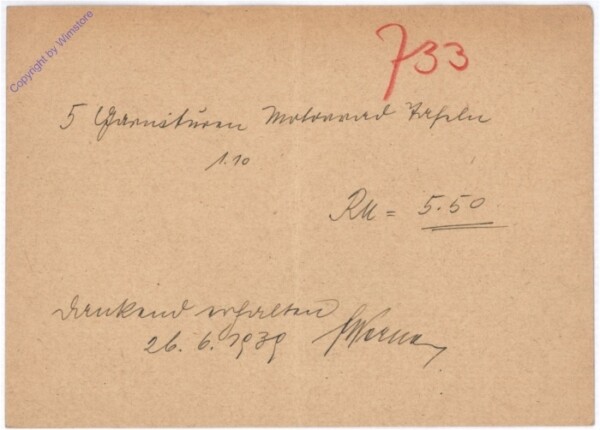 Copyright by Wimstore
733
5 Garnituren Motorrad Tafeln
1.10
RM = 5.50
dankend erhalten
26. 6. 1939